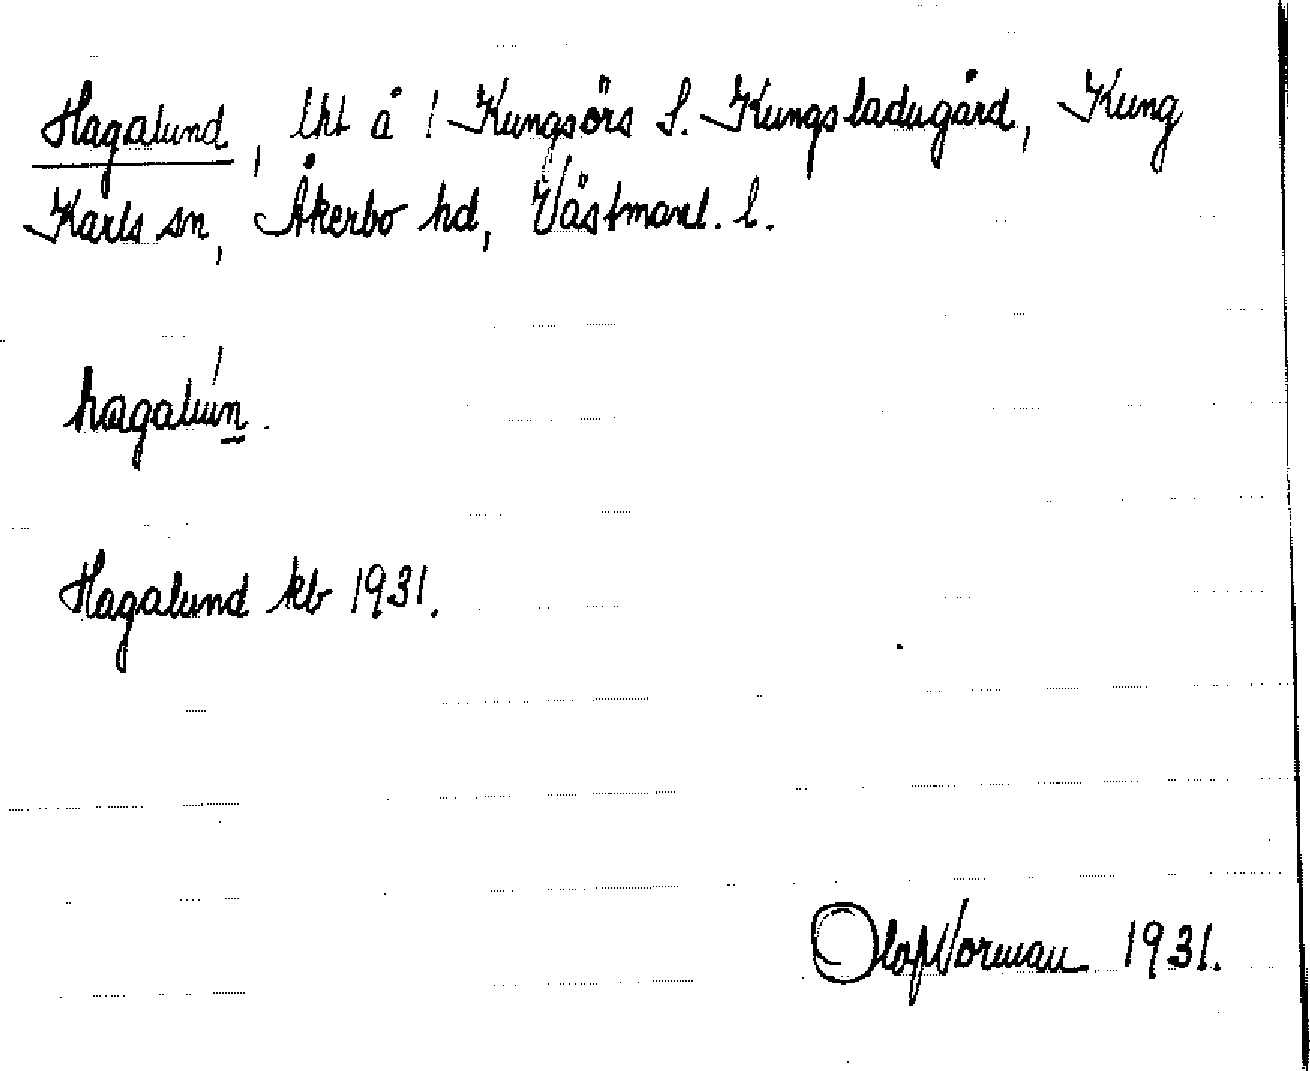 Hagalund, lht å 1 Kungsörs S. Kungsladugård, Kung
Karls sn, Åkerbo hd, Västmanl. l.
hagalún.
Hagalund kb 1931.
Olof Norman 1931.